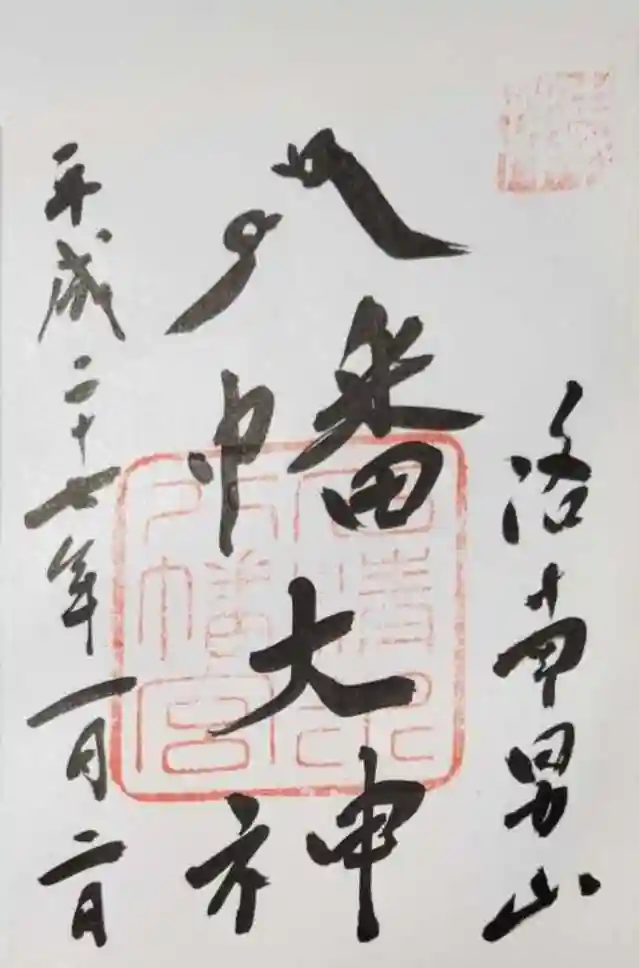 洛南男山
八幡大神
平成二十七年一月二日
石清水八幡宮